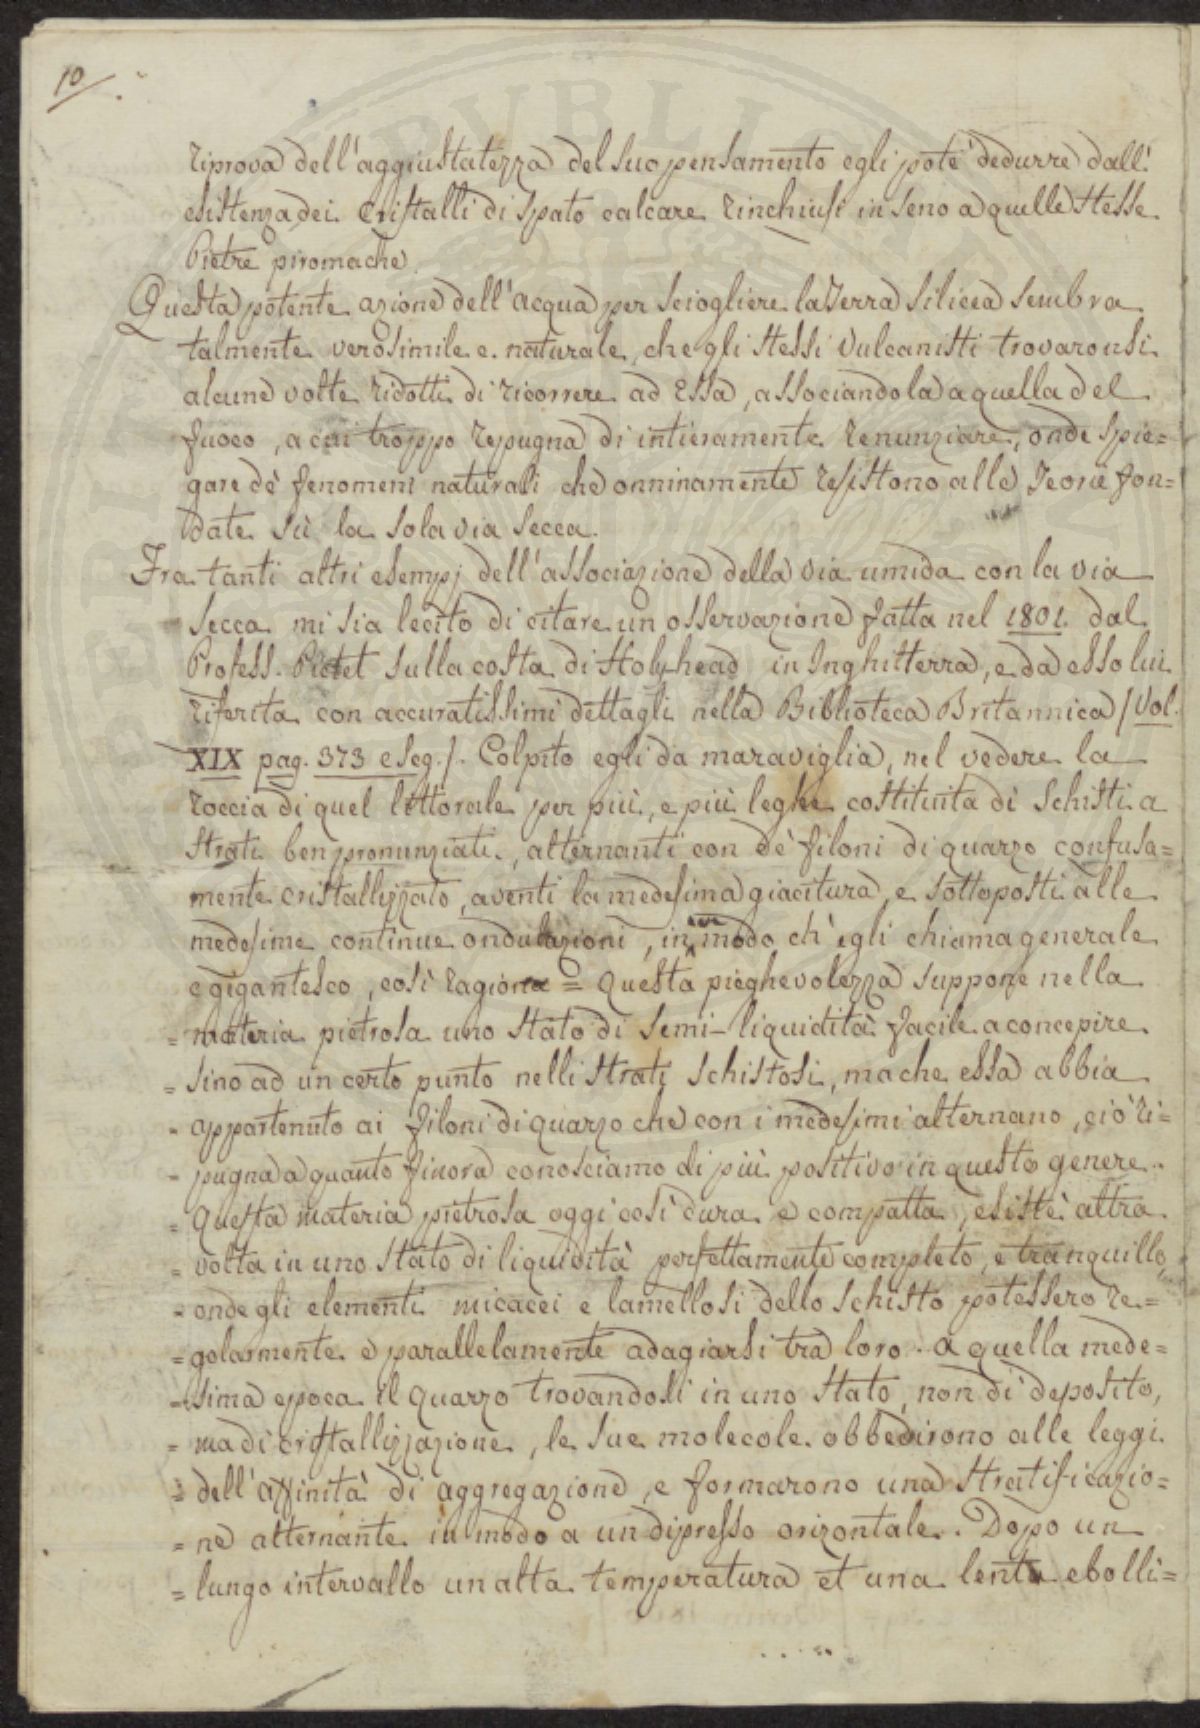 10
riprova dell'aggiustatezza del suo pensamento egli potè dedurre dall'
esistenza dei cristalli di spato calcare rinchiusi in seno a quelle stesse
Pietre piromache.
Questa potente azione dell'acqua per sciogliere la Terra silicea sembra
talmente verosimile e naturale, che gli stessi Vulcanisti trovaronsi
alcune volte ridotti di ricorrere ad Essa, associandola a quella del
fuoco, a cui troppo repugna di intieramente renunziare, onde spie=
gare de' fenomeni naturali che onninamente resistono alle Teorie fon=
date sù la sola via secca.
Fra tanti altri esempj dell'associazione della via umida con la via
secca mi sia lecito di citare un osservazione fatta nel 1801. dal
Profess. Pictet sulla costa di Holyhead in Inghilterra, e da esso lui
riferita con accuratissimi dettagli nella Biblioteca Britannica / Vol.
XIX pag. 373 e seg. /. Colpito egli da maraviglia, nel vedere la
roccia di quel littorale per più, e più leghe costituita di Schisti a
strati ben pronunziati, alternanti con de' filoni di quarzo confusa=
mente cristallizzato, aventi la medesima giacitura, e sottoposti alle
medesime continue ondulazioni, in modo ch'egli chiama generale
e gigantesco, così ragiona = Questa pieghevolezza suppone nella
= materia pietrosa uno stato di semi-liquidità facile a concepire
= sino ad un certo punto nelli strati schistosi, ma che essa abbia
= appartenuto ai filoni di quarzo che con i medesimi alternano, ciò ri=
= pugna a quanto finora conosciamo di più positivo in questo genere.
= Questa materia pietrosa oggi così dura e compatta, esistè altra
= volta in uno stato di liquidità perfettamente completo, e tranquillo,
= onde gli elementi micacei e lamellosi dello schisto potessero re=
= golarmente e parallelamente adagiarsi tra loro. A quella mede=
= sima epoca il quarzo trovandosi in uno stato, non di deposito,
= ma di cristallizzazione, le sue molecole obbedirono alle leggi
= dell'affinità di aggregazione, e formarono una stratificazio=
= ne alternante in modo a un dipresso orizontale. Dopo un
= lungo intervallo un alta temperatura et una lenta ebolli=